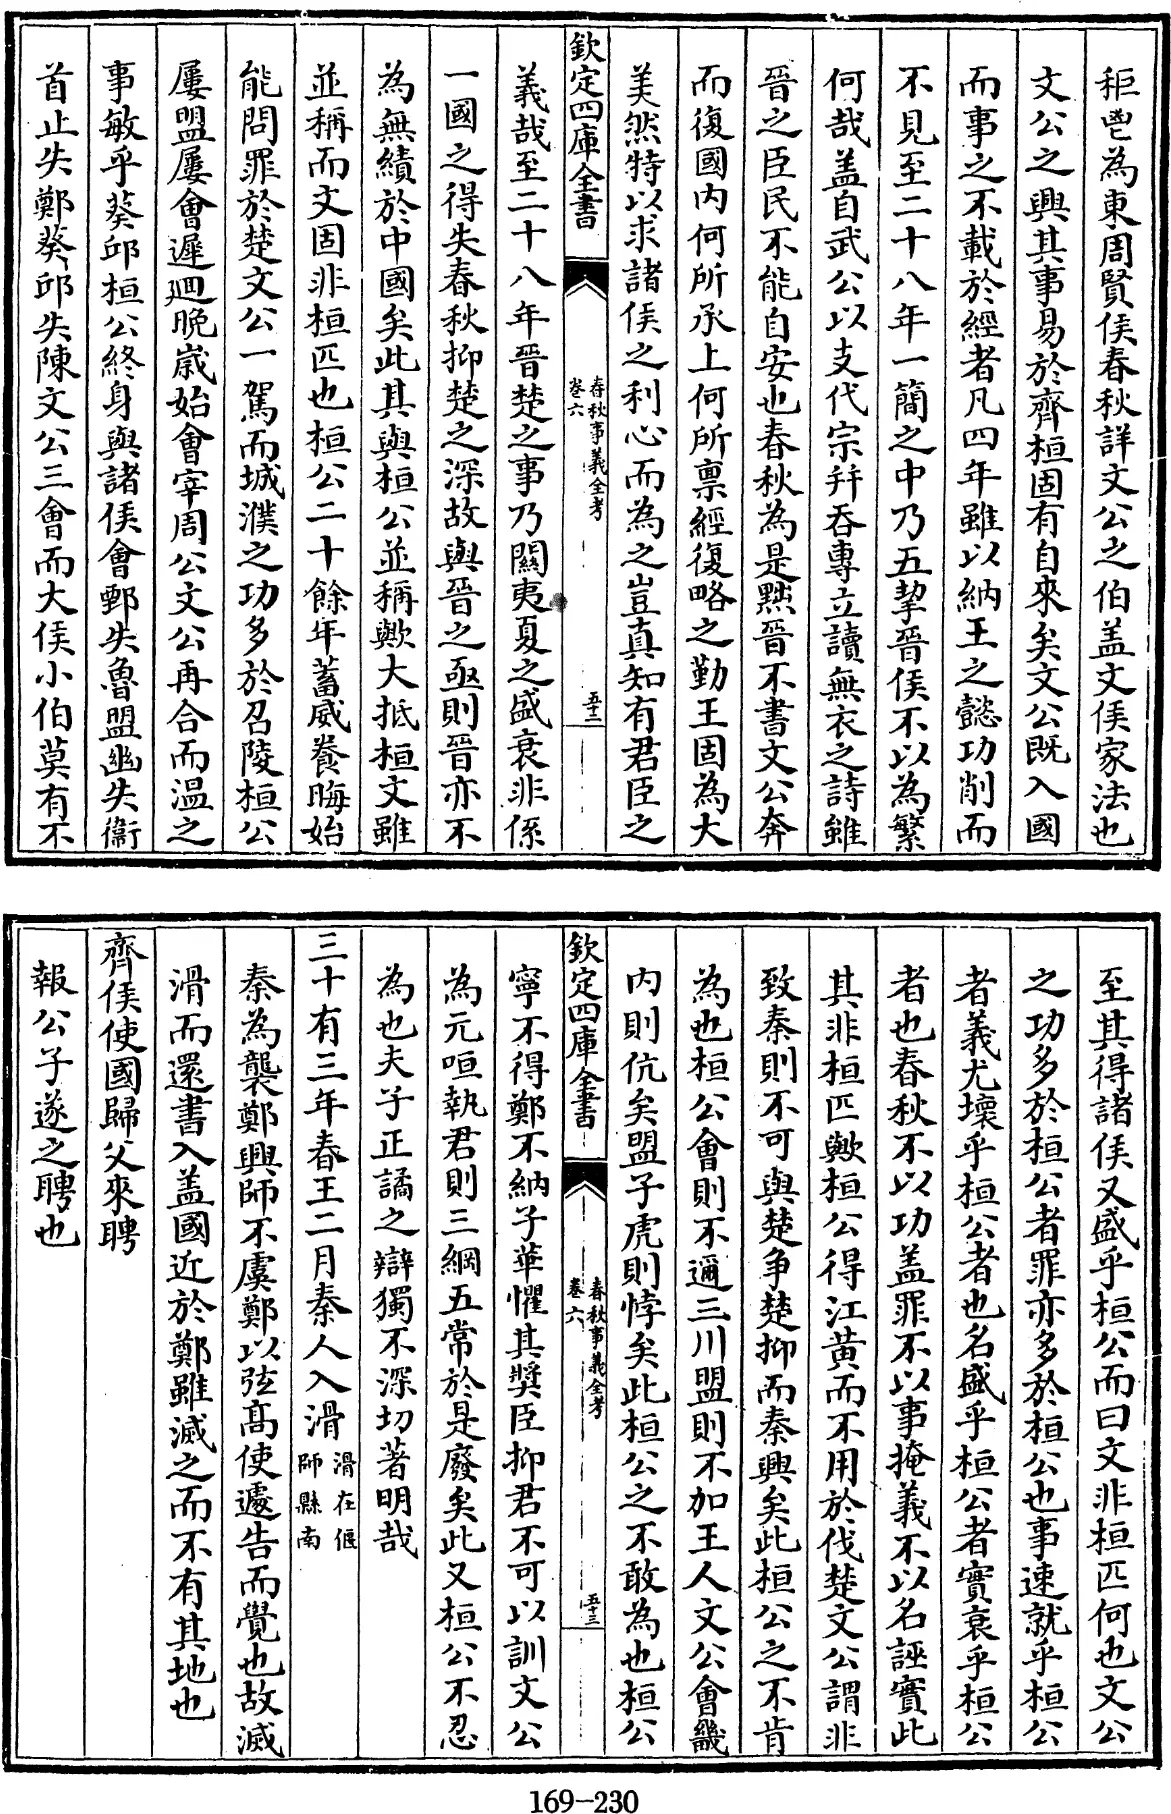 秬鬯為東周賢侯春秋詳文公之伯盖文侯家法也
文公之興其事易於齊桓固有自來矣文公既入國
而事之不載於經者凡四年雖以納王之懿功削而
不見至二十八年一簡之中乃五挈晉侯不以為繁
何哉盖自武公以支代宗幷吞專立讀無衣之詩雖
晉之臣民不能自安也春秋為是黜晉不書文公奔
而復國內何所承上何所禀經復略之勤王固為大
美然特以求諸侯之利心而為之豈真知有君臣之
欽定四庫全書
春秋事義全考
卷六
五十二
義哉至二十八年晉楚之事乃關夷夏之盛衰非係
一國之得失春秋抑楚之深故與晉之亟則晉亦不
為無績於中國矣此其與桓公並稱歟大抵桓文雖
並稱而文固非桓匹也桓公二十餘年蓄威養晦始
能問罪於楚文公一駕而城濮之功多於召陵桓公
屢盟屢會遲迴晚歲始會宰周公文公再合而溫之
事敏乎葵邱桓公終身與諸侯會鄄失魯盟幽失衞
首止失鄭葵邱失陳文公三會而大侯小伯莫有不
至其得諸侯又盛乎桓公而曰文非桓匹何也文公
之功多於桓公者罪亦多於桓公也事速就乎桓公
者義尤壞乎桓公者也名盛乎桓公者實衰乎桓公
者也春秋不以功盖罪不以事掩義不以名誣實此
其非桓匹歟桓公得江黃而不用於伐楚文公謂非
致秦則不可與楚爭楚抑而秦興矣此桓公之不肯
為也桓公會則不邇三川盟則不加王人文公會畿
內則伉矣盟子虎則悖矣此桓公之不敢為也桓公
欽定四庫全書
春秋事義全考
卷六
五十三
寧不得鄭不納子華懼其奬臣抑君不可以訓文公
為元咺執君則三綱五常於是廢矣此又桓公不忍
為也夫子正譎之辯獨不深切著明哉
三十有三年春王二月秦人入滑滑在偃師縣南
秦為襲鄭興師不虞鄭以弦高使遽告而覺也故滅
滑而還書入盖國近於鄭雖滅之而不有其地也
齊侯使國歸父來聘
報公子遂之聘也
169-230